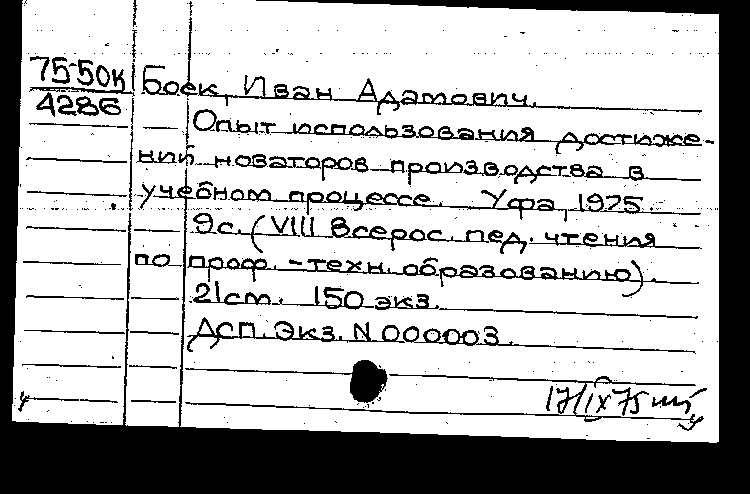 75-50к
4286
Боек, Иван Адамович.
Опыт использования достиже-
ний новаторов производства в
учебном процессе. Уфа, 1975.
9с. (VIII Всерос. пед. чтения
по проф.-техн. образованию).
21см. 150 экз.
Дсп. Экз. N 000003.
17/IX 75